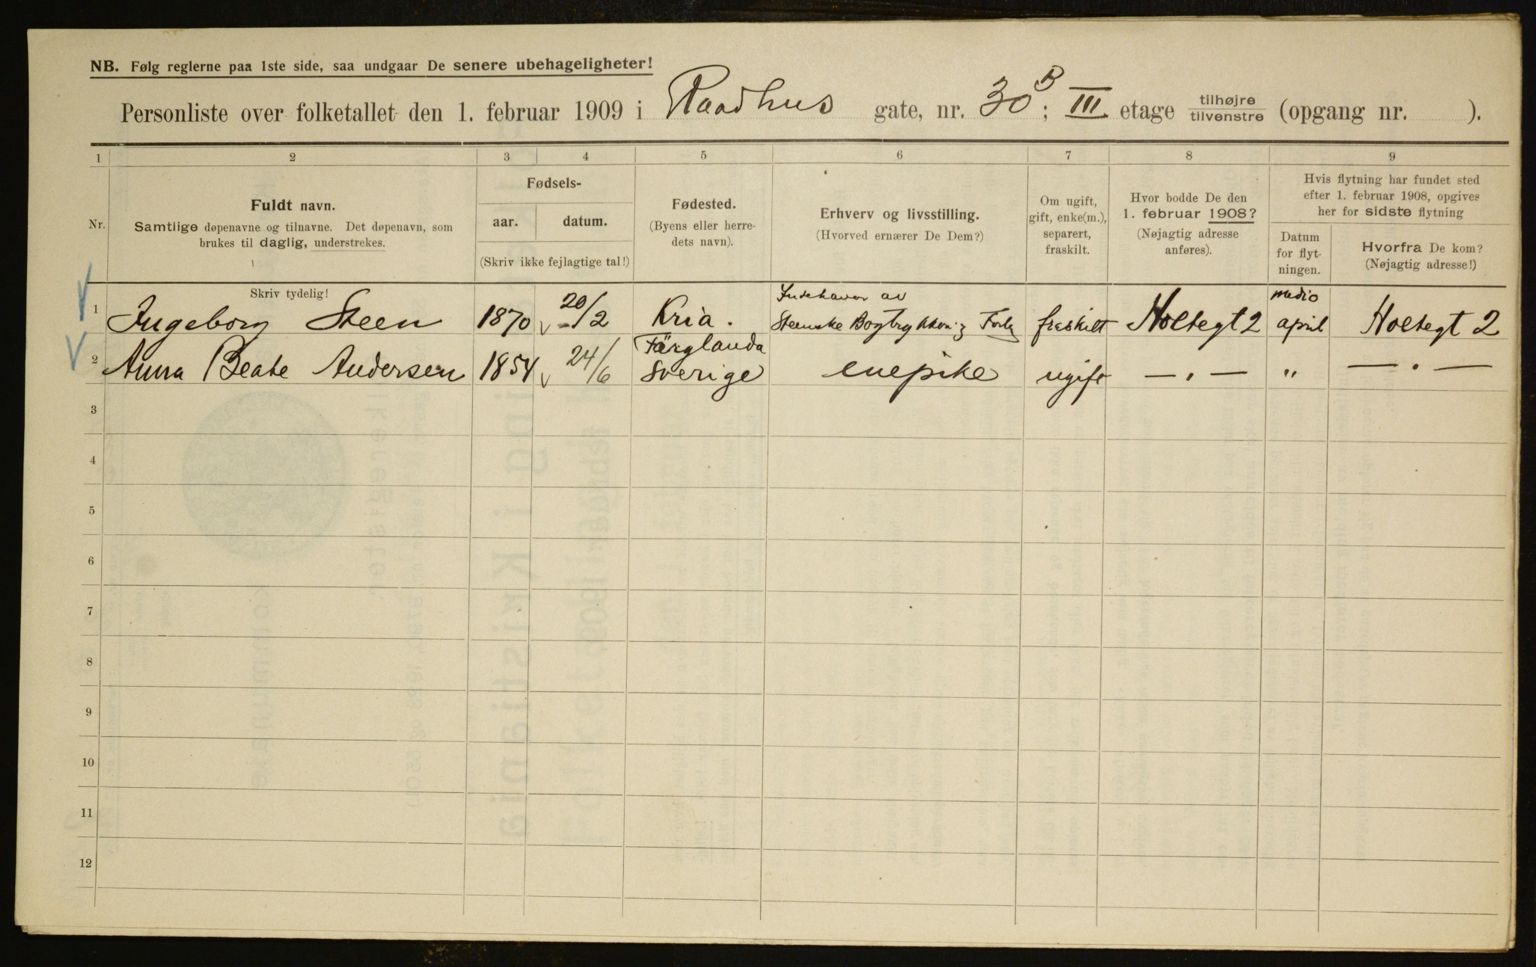 NB. Følg reglerne paa 1ste side, saa undgaar De senere ubehageligheter!
Personliste over folketallet den 1. februar 1909 i Raadhus gate, nr. 30 B; III etage tilhøjre tilvenstre (opgang nr. ).
1 2 3 4 5 6 7 8 9
Nr.
Fuldt navn.
Samtlige døpenavne og tilnavne. Det døpenavn, som
brukes til daglig, understrekes.
Skriv tydelig!
Fødsels-
aar. datum.
(Skriv ikke fejlagtige tal!)
Fødested.
(Byens eller herre-
dets navn).
Erhverv og livsstilling.
(Hvorved ernærer De Dem?)
Om ugift,
gift, enke(m.),
separert,
fraskilt.
Hvor bodde De den
1. februar 1908?
(Nøjagtig adresse
anføres).
Hvis flytning har fundet sted
efter 1. februar 1908, opgives
her for sidste flytning
Datum
for flyt-
ningen.
Hvorfra De kom?
(Nøjagtig adresse!)
1 Ingeborg Steen 1870 20/2 Kria. Indehaver av
Steenske Bogtrykkeri og Forlag fraskilt Holtegt 2 medio
april Holtegt 2
2 Anna Beate Andersen 1854 24/6 Färglanda
Sverige enepike ugift — „ — „ — „ —
3
4
5
6
7
8
9
10
11
12